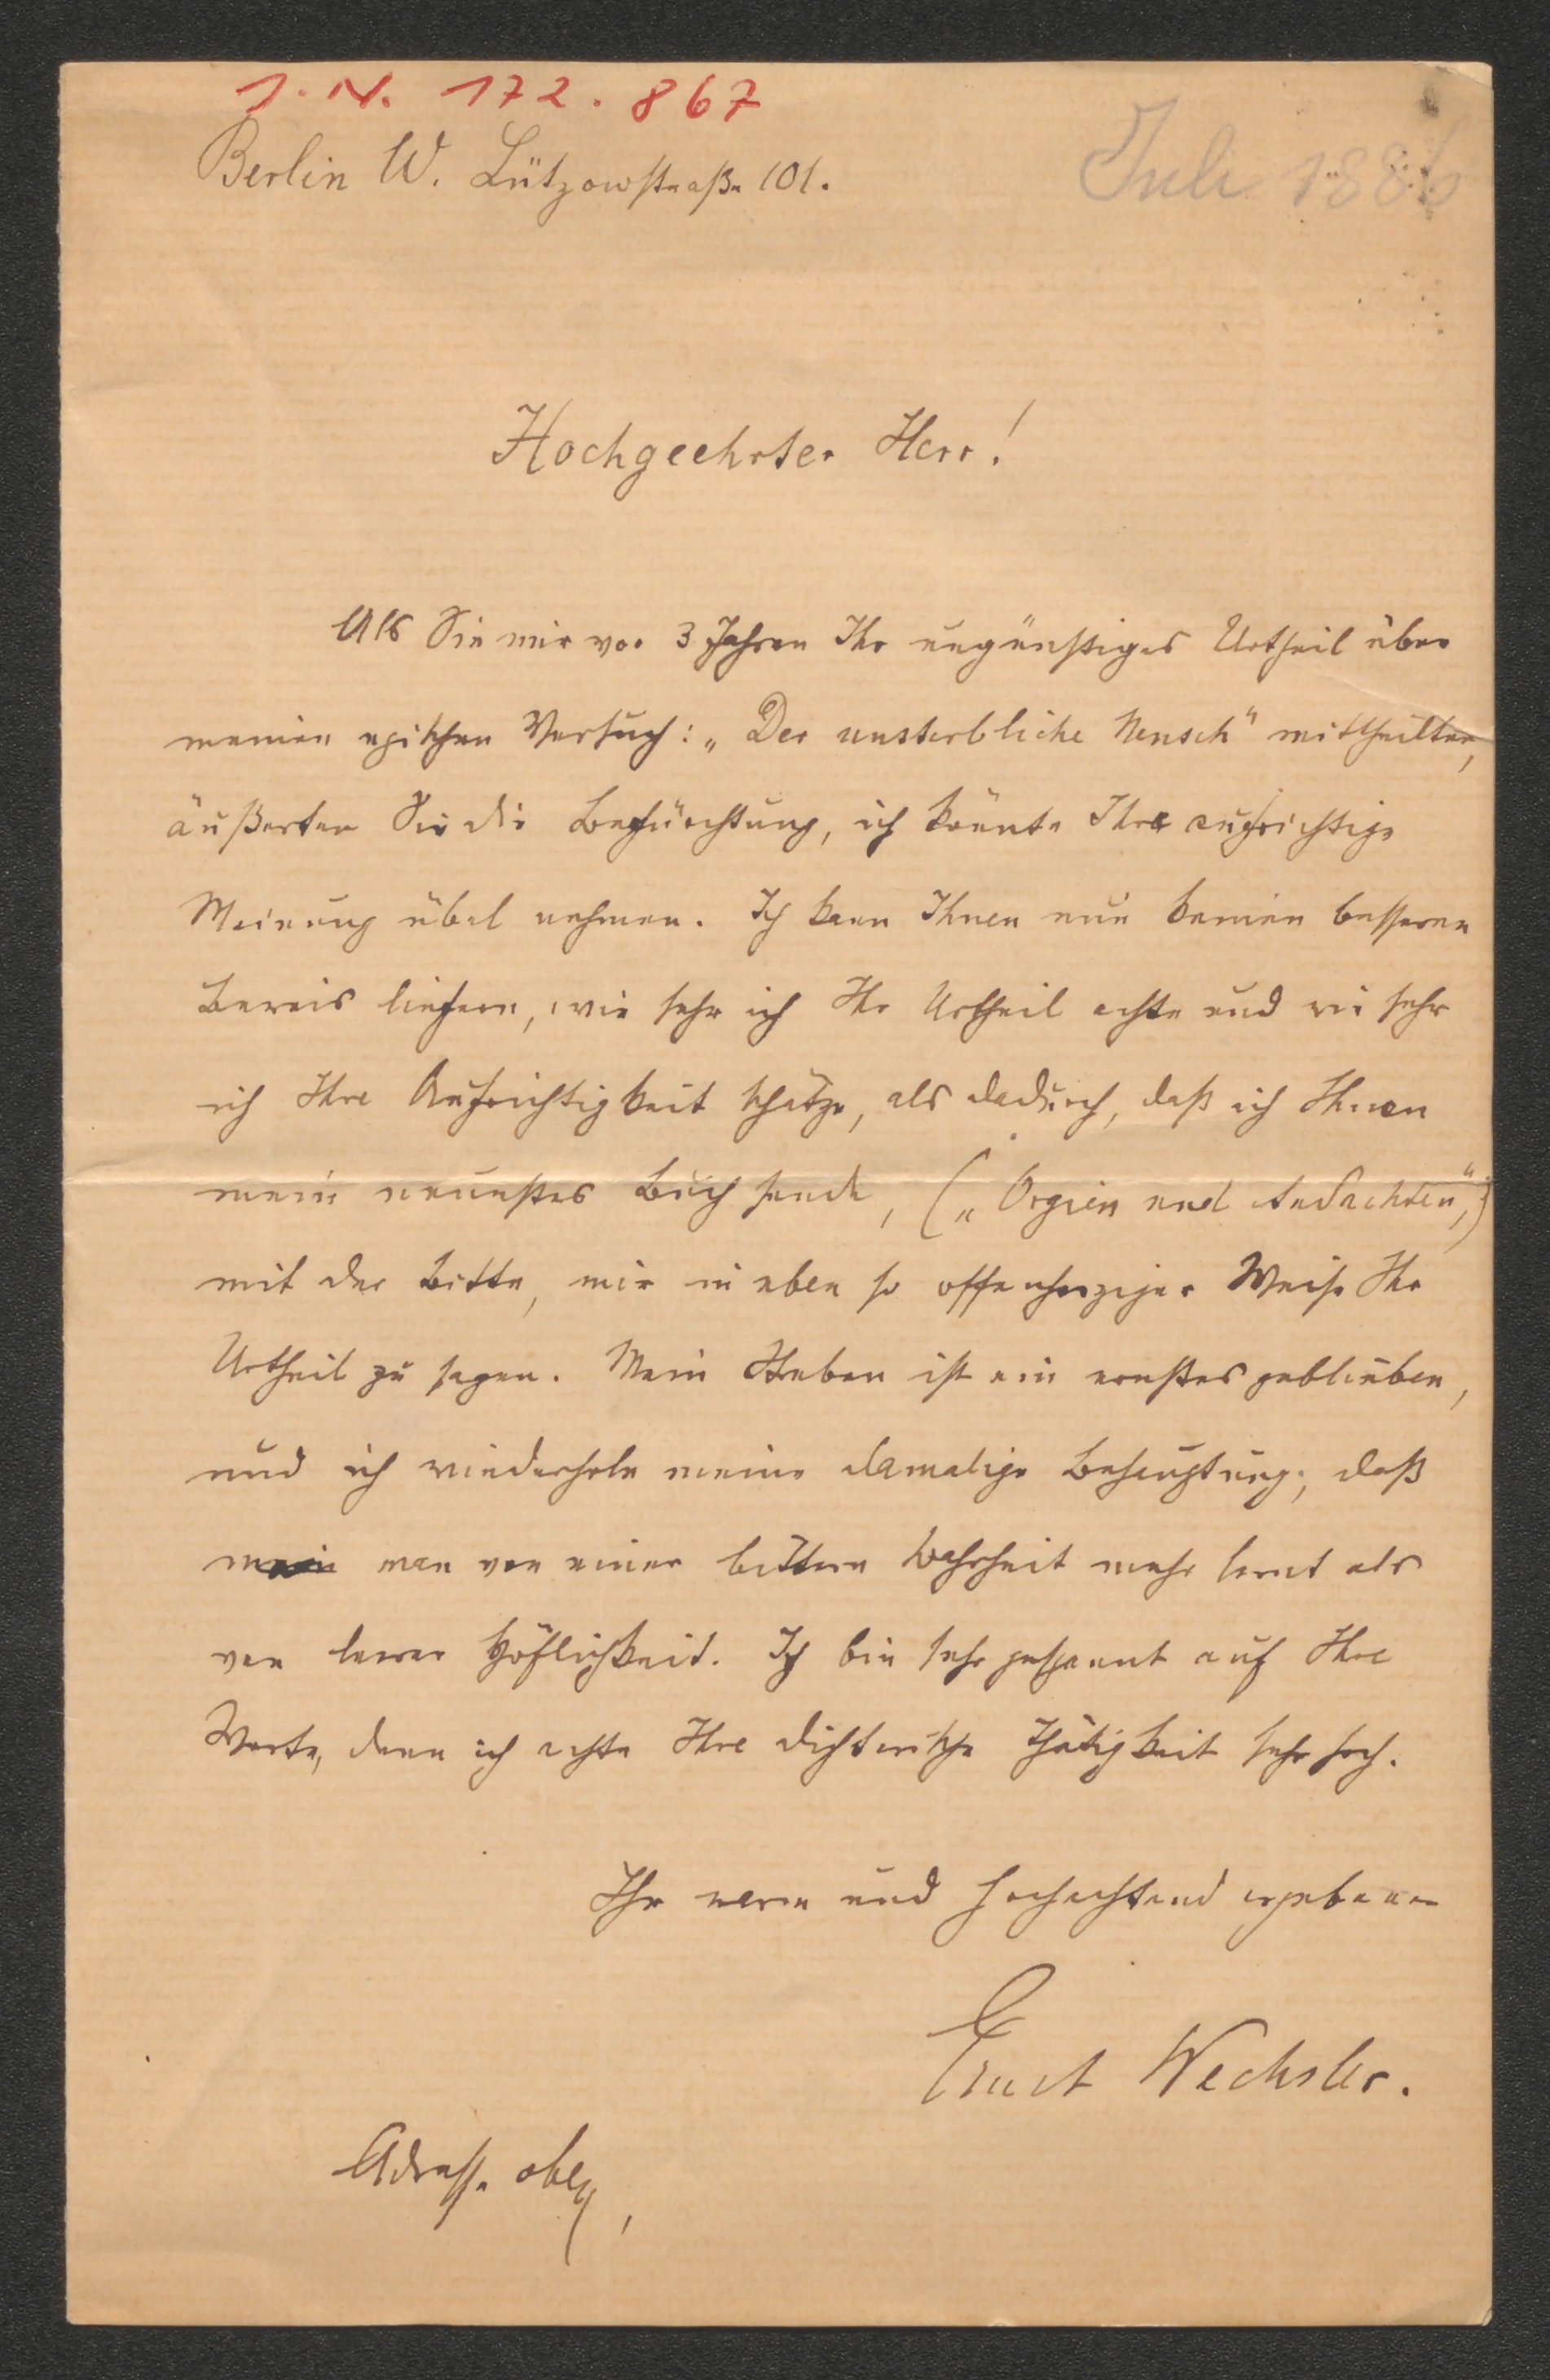 J. N. 172.867
Berlin W. Lützowstraße 101.
Juli 1886
Hochgeehrter Herr!
Als Sie mir vor 3 Jahren Ihr ungünstiges Urtheil über
meinen epischen Versuch: „Der unsterbliche Mensch" mittheilten,
äußerten Sie die Befürchtung, ich könnte Ihre aufrichtige
Meinung übel nehmen. Ich kann Ihnen nun keinen besseren
Beweis liefern, wie sehr ich Ihr Urtheil achte und wie sehr
ich Ihre Aufrichtigkeit schätze, als dadurch, daß ich Ihnen
mein neuestes Buch sende, („Orgien und Andachten",)
mit der Bitte, mir in eben so offenherziger Weise Ihr
Urtheil zu sagen. Mein Streben ist ein ernstes geblieben,
und ich wiederhole meine damalige Behauptung, daß
man von einer bittern Wahrheit mehr lernt als
von leerer Höflichkeit. Ich bin sehr gespannt auf Ihre
Worte, denn ich achte Ihre dichterische Thätigkeit sehr hoch.
Ihr warm und hochachtend ergebener
Ernst Wechsler.
Adresse oben,